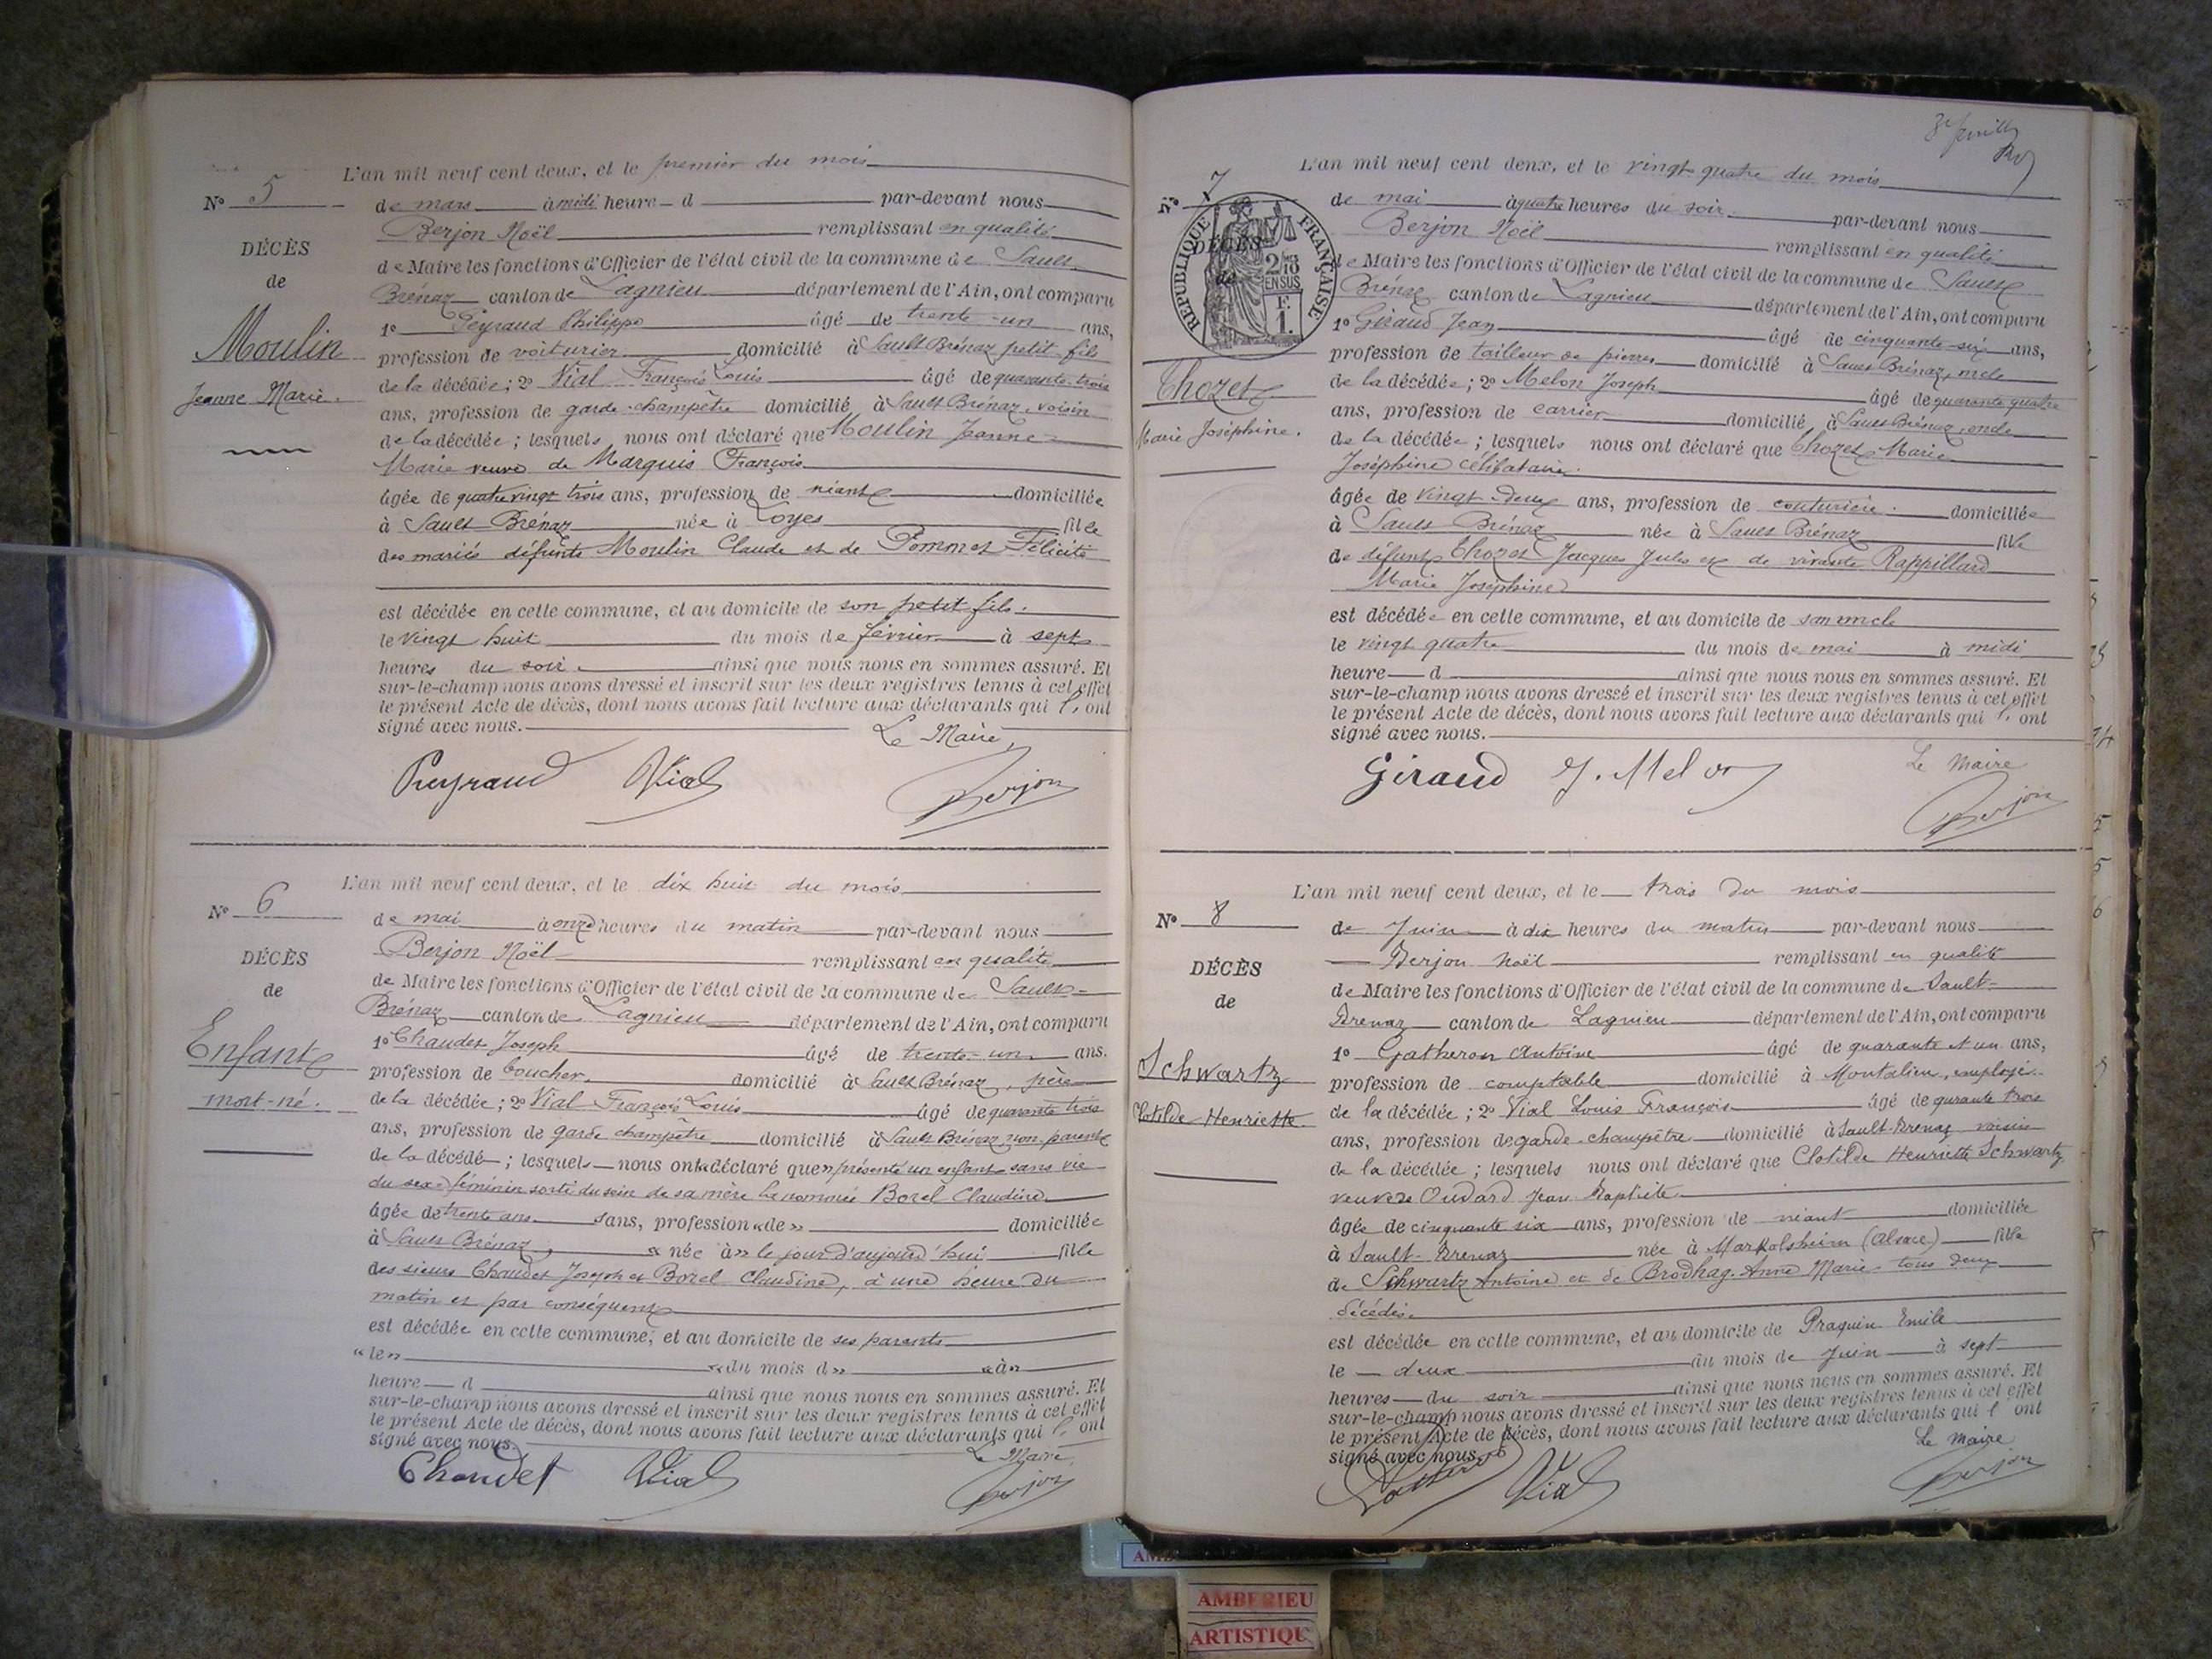 L'an mil neuf cent deux, et le premier du mois
N° 5
de mars à midi heure d par-devant nous
Berjon Noël remplissant en qualité
DÉCÈS
de Maire les fonctions d'Officier de l'état civil de la commune de Sault
de
Brénaz canton de Lagnieu département de l'Ain, ont comparu
1° Peyraud Philippe âgé de trente-un ans,
Moulin
profession de voiturier domicilié à Sault Brénaz petit-fils
de la décédée; 2° Vial François Louis âgé de quarante-trois
Jeanne Marie.
ans, profession de garde-champêtre domicilié à Sault Brénaz, voisin
de la décédée; lesquels nous ont déclaré que Moulin Jeanne
Marie veuve de Marquis François
âgée de quatre vingt trois ans, profession de néant domiciliée
à Sault Brénaz née à Loyes fille
des mariés défunts Moulin Claude et de Pommet Félicité
est décédée en cette commune, et au domicile de son petit fils.
le vingt huit du mois de février à sept
heures du soir ainsi que nous nous en sommes assuré. Et
sur-le-champ nous avons dressé et inscrit sur les deux registres tenus à cet effet
le présent Acte de décès, dont nous avons fait lecture aux déclarants qui l'ont
signé avec nous.
Le Maire,
Peyraud Vial Berjon
L'an mil neuf cent deux, et le dix huit du mois
N° 6
de mai à onze heures du matin par-devant nous
Berjon Noël remplissant en qualité
DÉCÈS
de Maire les fonctions d'Officier de l'état civil de la commune de Sault-
de
Brénaz canton de Lagnieu département de l'Ain, ont comparu
1° Chaudet Joseph âgé de trente-un ans.
Enfant
profession de boucher, domicilié à Sault Brénaz, père
mort-né.
de la décédée; 2° Vial François Louis âgé de quarante trois
ans, profession de garde champêtre domicilié à Sault Brénaz non parent
de la décédé; lesquels nous ont déclaré que présenté un enfant sans vie
du sexe féminin sorti du sein de sa mère la nommée Borel Claudine
âgée de trente ans sans, profession «de» domiciliée
à Sault Brénaz, « née à» le jour d'aujourd'hui fille
des sieurs Chaudet Joseph et Borel Claudine, à une heure du
matin et par conséquent
est décédée en cette commune, et au domicile de ses parents
«le» «du mois d» «à»
heure d ainsi que nous nous en sommes assuré. Et
sur-le-champ nous avons dressé et inscrit sur les deux registres tenus à cet effet
le présent Acte de décès, dont nous avons fait lecture aux déclarants qui l'ont
signé avec nous.
Le Maire
Chaudet Vial Berjon
L'an mil neuf cent deux, et le vingt quatre du mois
N° 7
de mai à quatre heures du soir par-devant nous
Berjon Noël remplissant en qualité
DÉCÈS
RÉPUBLIQUE FRANÇAISE
2/10 EN SUS
F. 1.
de Maire les fonctions d'Officier de l'état civil de la commune de Sault
de
Brénaz canton de Lagnieu département de l'Ain, ont comparu
1° Giraud Jean âgé de cinquante-six ans,
profession de tailleur de pierres domicilié à Sault Brénaz, oncle
Thozet
de la décédée; 2° Melon Joseph âgé de quarante quatre
ans, profession de carrier domicilié à Sault Brénaz, oncle
Marie Joséphine.
de la décédée; lesquels nous ont déclaré que Thozet Marie
Joséphine célibataire.
âgée de vingt-deux ans, profession de couturière. domiciliée
à Sault Brénaz née à Sault Brénaz fille
de défunt Thozet Jacques Jules et de vivante Rappillard
Marie Joséphine
est décédée en cette commune, et au domicile de son oncle
le vingt quatre du mois de mai à midi
heure d ainsi que nous nous en sommes assuré. Et
sur-le-champ nous avons dressé et inscrit sur les deux registres tenus à cet effet
le présent Acte de décès, dont nous avons fait lecture aux déclarants qui l'ont
signé avec nous.
Le Maire
Giraud J. Melon Berjon
L'an mil neuf cent deux, et le trois du mois
N° 8
de Juin à dix heures du matin par-devant nous
Berjon Noël remplissant en qualité
DÉCÈS
de Maire les fonctions d'Officier de l'état civil de la commune de Sault-
de
Brenaz canton de Lagnieu département de l'Ain, ont comparu
1° Gatheron Antoine âgé de quarante et un ans,
Schwartz
profession de comptable domicilié à Montalieu, employé
Clotilde Henriette
de la décédée; 2° Vial Louis François âgé de qurante trois
ans, profession de garde-champêtre domicilié à Sault-Brenaz voisin
de la décédée; lesquels nous ont déclaré que Clotilde Henriette Schwartz
veuve de Oudard Jean Baptiste
âgée de cinquante six ans, profession de néant domiciliée
à Sault-Brenaz née à Markolsheim (Alsace) fille
de Schwartz Antoine et de Brodhag Anne Marie tous deux
décédés
est décédée en cette commune, et au domicile de Praquin Emile
le deux du mois de Juin à sept
heures du soir ainsi que nous nous en sommes assuré. Et
sur-le-champ nous avons dressé et inscrit sur les deux registres tenus à cet effet
le présent Acte de décès, dont nous avons fait lecture aux déclarants qui l'ont
signé avec nous.
Le Maire
Vial Berjon
AMBERIEU
ARTISTIQUE